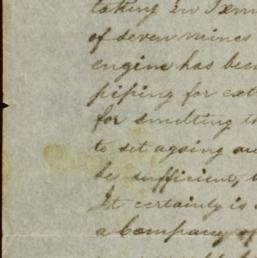 taking in
of seven mines
engine has been
piping for ext
for smelting
to set agoing
be sufficient,
It certainly is
a Company of